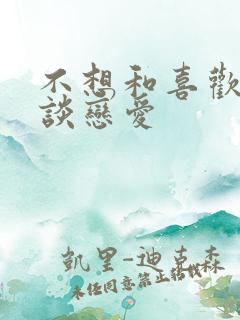 不想和喜歡
談戀愛
凱里-迪克森
未經同意禁止轉載